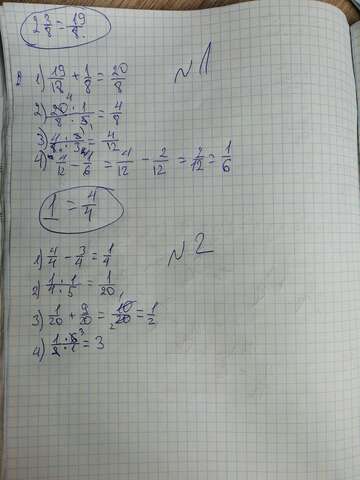 2 3/8 = 19/8.
№1
1) 19/18 + 1/8 = 20/8
2) 20/8 · 1/5 = 4/8
3) 4/8 · 2/3 = 4/12
4) 4/12 - 1/6 = 4/12 - 2/12 = 2/12 = 1/6
1 = 4/4
№2
1) 4/4 - 3/4 = 1/4
2) 1/4 · 1/5 = 1/20,
3) 1/20 + 9/20 = 10/20 = 1/2
4) 1/2 · 6/1 = 3